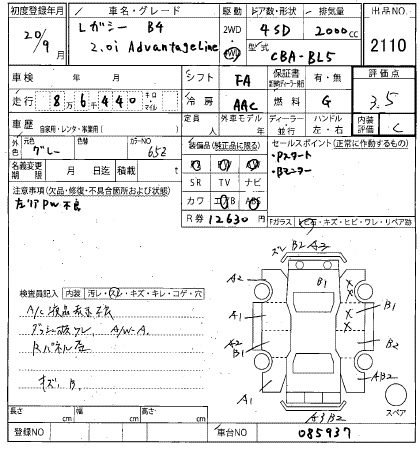 初度登録年月 車名・グレード 駆動 ドア数・形状 排気量 出品NO.
20/9月 レガシー B4 2WD 4SD 2000cc
2.0i AdvantageLine 4WD 型式 CBA-BL5 2110
車検 年 月 シフト FA 保証書 有・無 評価点
走行 8万6千440 キロ・マイル 冷房 AAC 燃料 G 3.5
車歴 自家用・レンタ・事業用( ) 定員 人 外車モデル 年 ディーラー 並行 ハンドル 左・右 内装評価 C
外色 元色 グレー 色替 カラーNO 652 装備品(純正品に限る) セールスポイント(正常に作動するもの)
名義変更期限 月 日迄 積載 t PS PW ・Pスタート
SR TV ナビ ・Bモニター
注意事項(欠品・修復・不具合箇所および状態) カワ エアB ABS
左リア PW 不良 R券 12630円
Fガラス トビ石・キズ・ヒビ・ワレ・リペア跡
B2
A2 B1
検査員記入 内装 汚レ・スレ・キズ・キレ・コゲ・穴
A/C液晶表示不良 A1 B1
A/W-A A2 B1 B2
Rパネル歪 AB2
A1 スペア
A3B2
長さ cm 幅 cm 高さ cm
登録NO 車台NO 085937